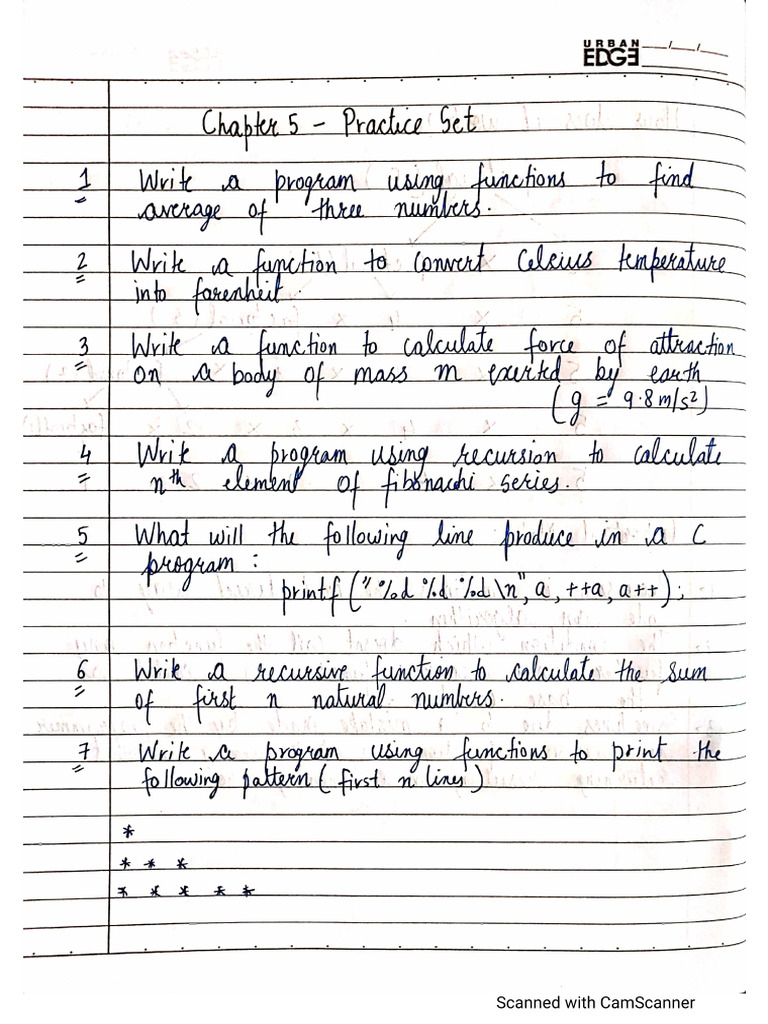 URBAN
EDGE
Chapter 5 - Practice Set
1 Write a program using functions to find
average of three numbers.
2 Write a function to convert Celsius temperature
into farenheit.
3 Write a function to calculate force of attraction
on a body of mass m exerted by earth
(g = 9.8 m/s²)
4 Write a program using recursion to calculate
nth element of fibonachi series.
5 What will the following line produce in a C
program :
printf ("%d %d %d \n", a, ++a, a++);
6 Write a recursive function to calculate the sum
of first n natural numbers.
7 Write a program using functions to print the
following pattern (first n lines)
*
* * *
* * * * *
Scanned with CamScanner